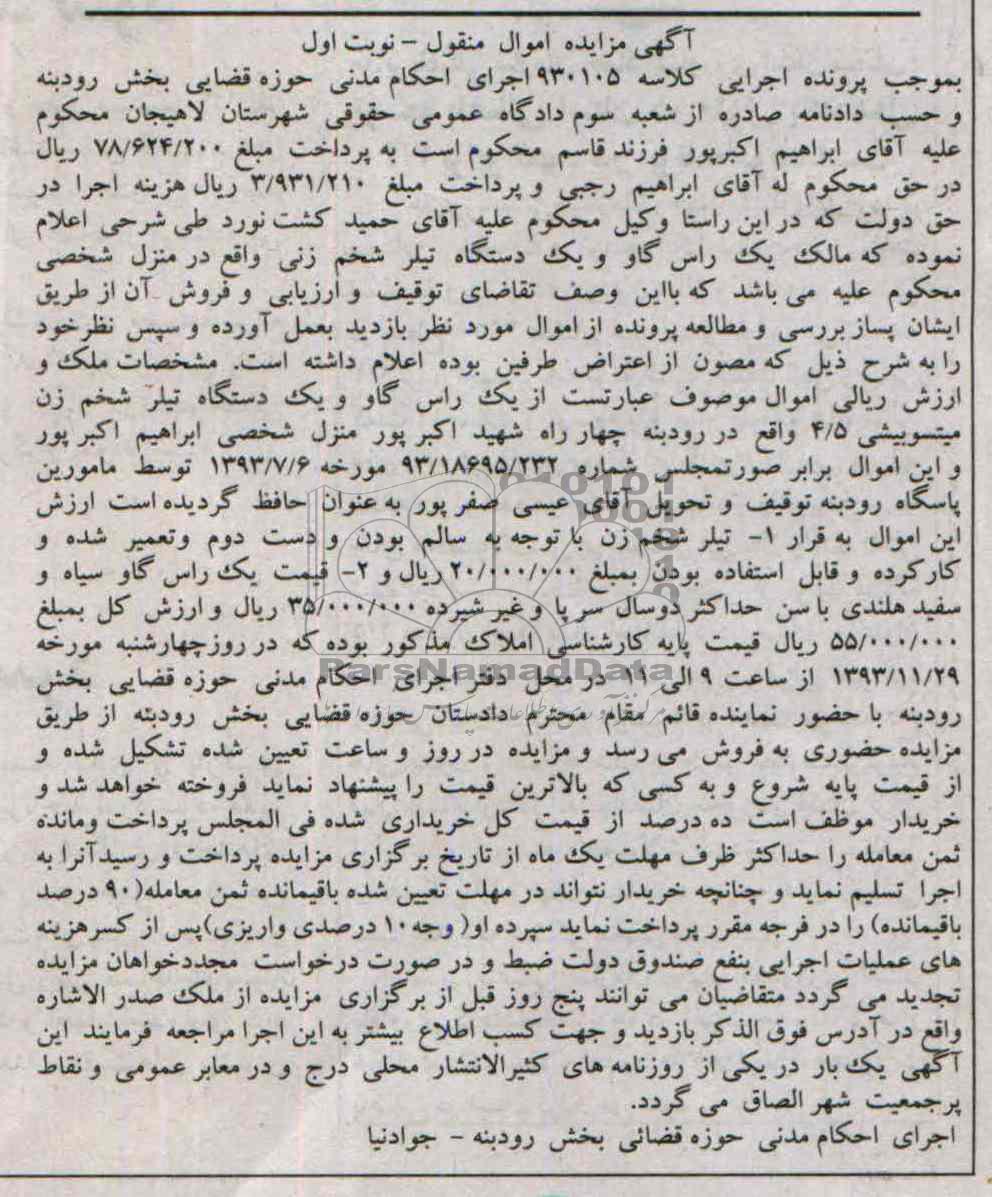 آگهی مزایده اموال منقول - نوبت اول
بموجب پرونده اجرایی کلاسه ۹۳۰۱۰۵ اجرای احکام مدنی حوزه قضایی بخش رودبنه
و حسب دادنامه صادره از شعبه سوم دادگاه عمومی حقوقی شهرستان لاهیجان محکوم
علیه آقای ابراهیم اکبرپور فرزند قاسم محکوم است به پرداخت مبلغ ۷۸/۶۲۴/۲۰۰ ریال
در حق محکوم له آقای ابراهیم رجبی و پرداخت مبلغ ۳/۹۳۱/۲۱۰ ریال هزینه اجرا در
حق دولت که در این راستا وکیل محکوم علیه آقای حمید کشت نورد طی شرحی اعلام
نموده که مالک یک راس گاو و یک دستگاه تیلر شخم زنی واقع در منزل شخصی
محکوم علیه می باشد که بااین وصف تقاضای توقیف و ارزیابی و فروش آن از طریق
ایشان پساز بررسی و مطالعه پرونده از اموال مورد نظر بازدید بعمل آورده و سپس نظرخود
را به شرح ذیل که مصون از اعتراض طرفین بوده اعلام داشته است. مشخصات ملک و
ارزش ریالی اموال موصوف عبارتست از یک راس گاو و یک دستگاه تیلر شخم زن
میتسوبیشی ۴/۵ واقع در رودبنه چهار راه شهید اکبر پور منزل شخصی ابراهیم اکبر پور
و این اموال برابر صورتمجلس شماره ۹۳/۱۸۶۹۵/۲۳۲ مورخه ۱۳۹۳/۷/۶ توسط مامورین
پاسگاه رودبنه توقیف و تحویل آقای عیسی صفر پور به عنوان حافظ گردیده است ارزش
این اموال به قرار ۱- تیلر شخم زن با توجه به سالم بودن و دست دوم وتعمیر شده و
کارکرده و قابل استفاده بودن بمبلغ ۲۰/۰۰۰/۰۰۰ ریال و ۲- قیمت یک راس گاو سیاه و
سفید هلندی با سن حداکثر دوسال سر پا و غیر شیرده ۳۵/۰۰۰/۰۰۰ ریال و ارزش کل بمبلغ
۵۵/۰۰۰/۰۰۰ ریال قیمت پایه کارشناسی املاک مذکور بوده که در روزچهارشنبه مورخه
ParsNamadData
۱۳۹۳/۱۱/۲۹ از ساعت ۹ الی ۱۱ در محل دفتر اجرای احکام مدنی حوزه قضایی بخش
رودبنه با حضور نماینده قائم مقام محترم دادستان حوزه قضایی بخش رودبنه از طریق
مزایده حضوری به فروش می رسد و مزایده در روز و ساعت تعیین شده تشکیل شده و
از قیمت پایه شروع و به کسی که بالاترین قیمت را پیشنهاد نماید فروخته خواهد شد و
خریدار موظف است ده درصد از قیمت کل خریداری شده فی المجلس پرداخت ومانده
ثمن معامله را حداکثر ظرف مهلت یک ماه از تاریخ برگزاری مزایده پرداخت و رسیدآنرا به
اجرا تسلیم نماید و چنانچه خریدار نتواند در مهلت تعیین شده باقیمانده ثمن معامله(۹۰ درصد
باقیمانده) را در فرجه مقرر پرداخت نماید سپرده او( وجه ۱۰ درصدی واریزی)پس از کسرهزینه
های عملیات اجرایی بنفع صندوق دولت ضبط و در صورت درخواست مجددخواهان مزایده
تجدید می گردد متقاضیان می توانند پنج روز قبل از برگزاری مزایده از ملک صدر الاشاره
واقع در آدرس فوق الذکر بازدید و جهت کسب اطلاع بیشتر به این اجرا مراجعه فرمایند این
آگهی یک بار در یکی از روزنامه های کثیرالانتشار محلی درج و در معابر عمومی و نقاط
پرجمعیت شهر الصاق می گردد.
اجرای احکام مدنی حوزه قضائی بخش رودبنه - جوادنیا